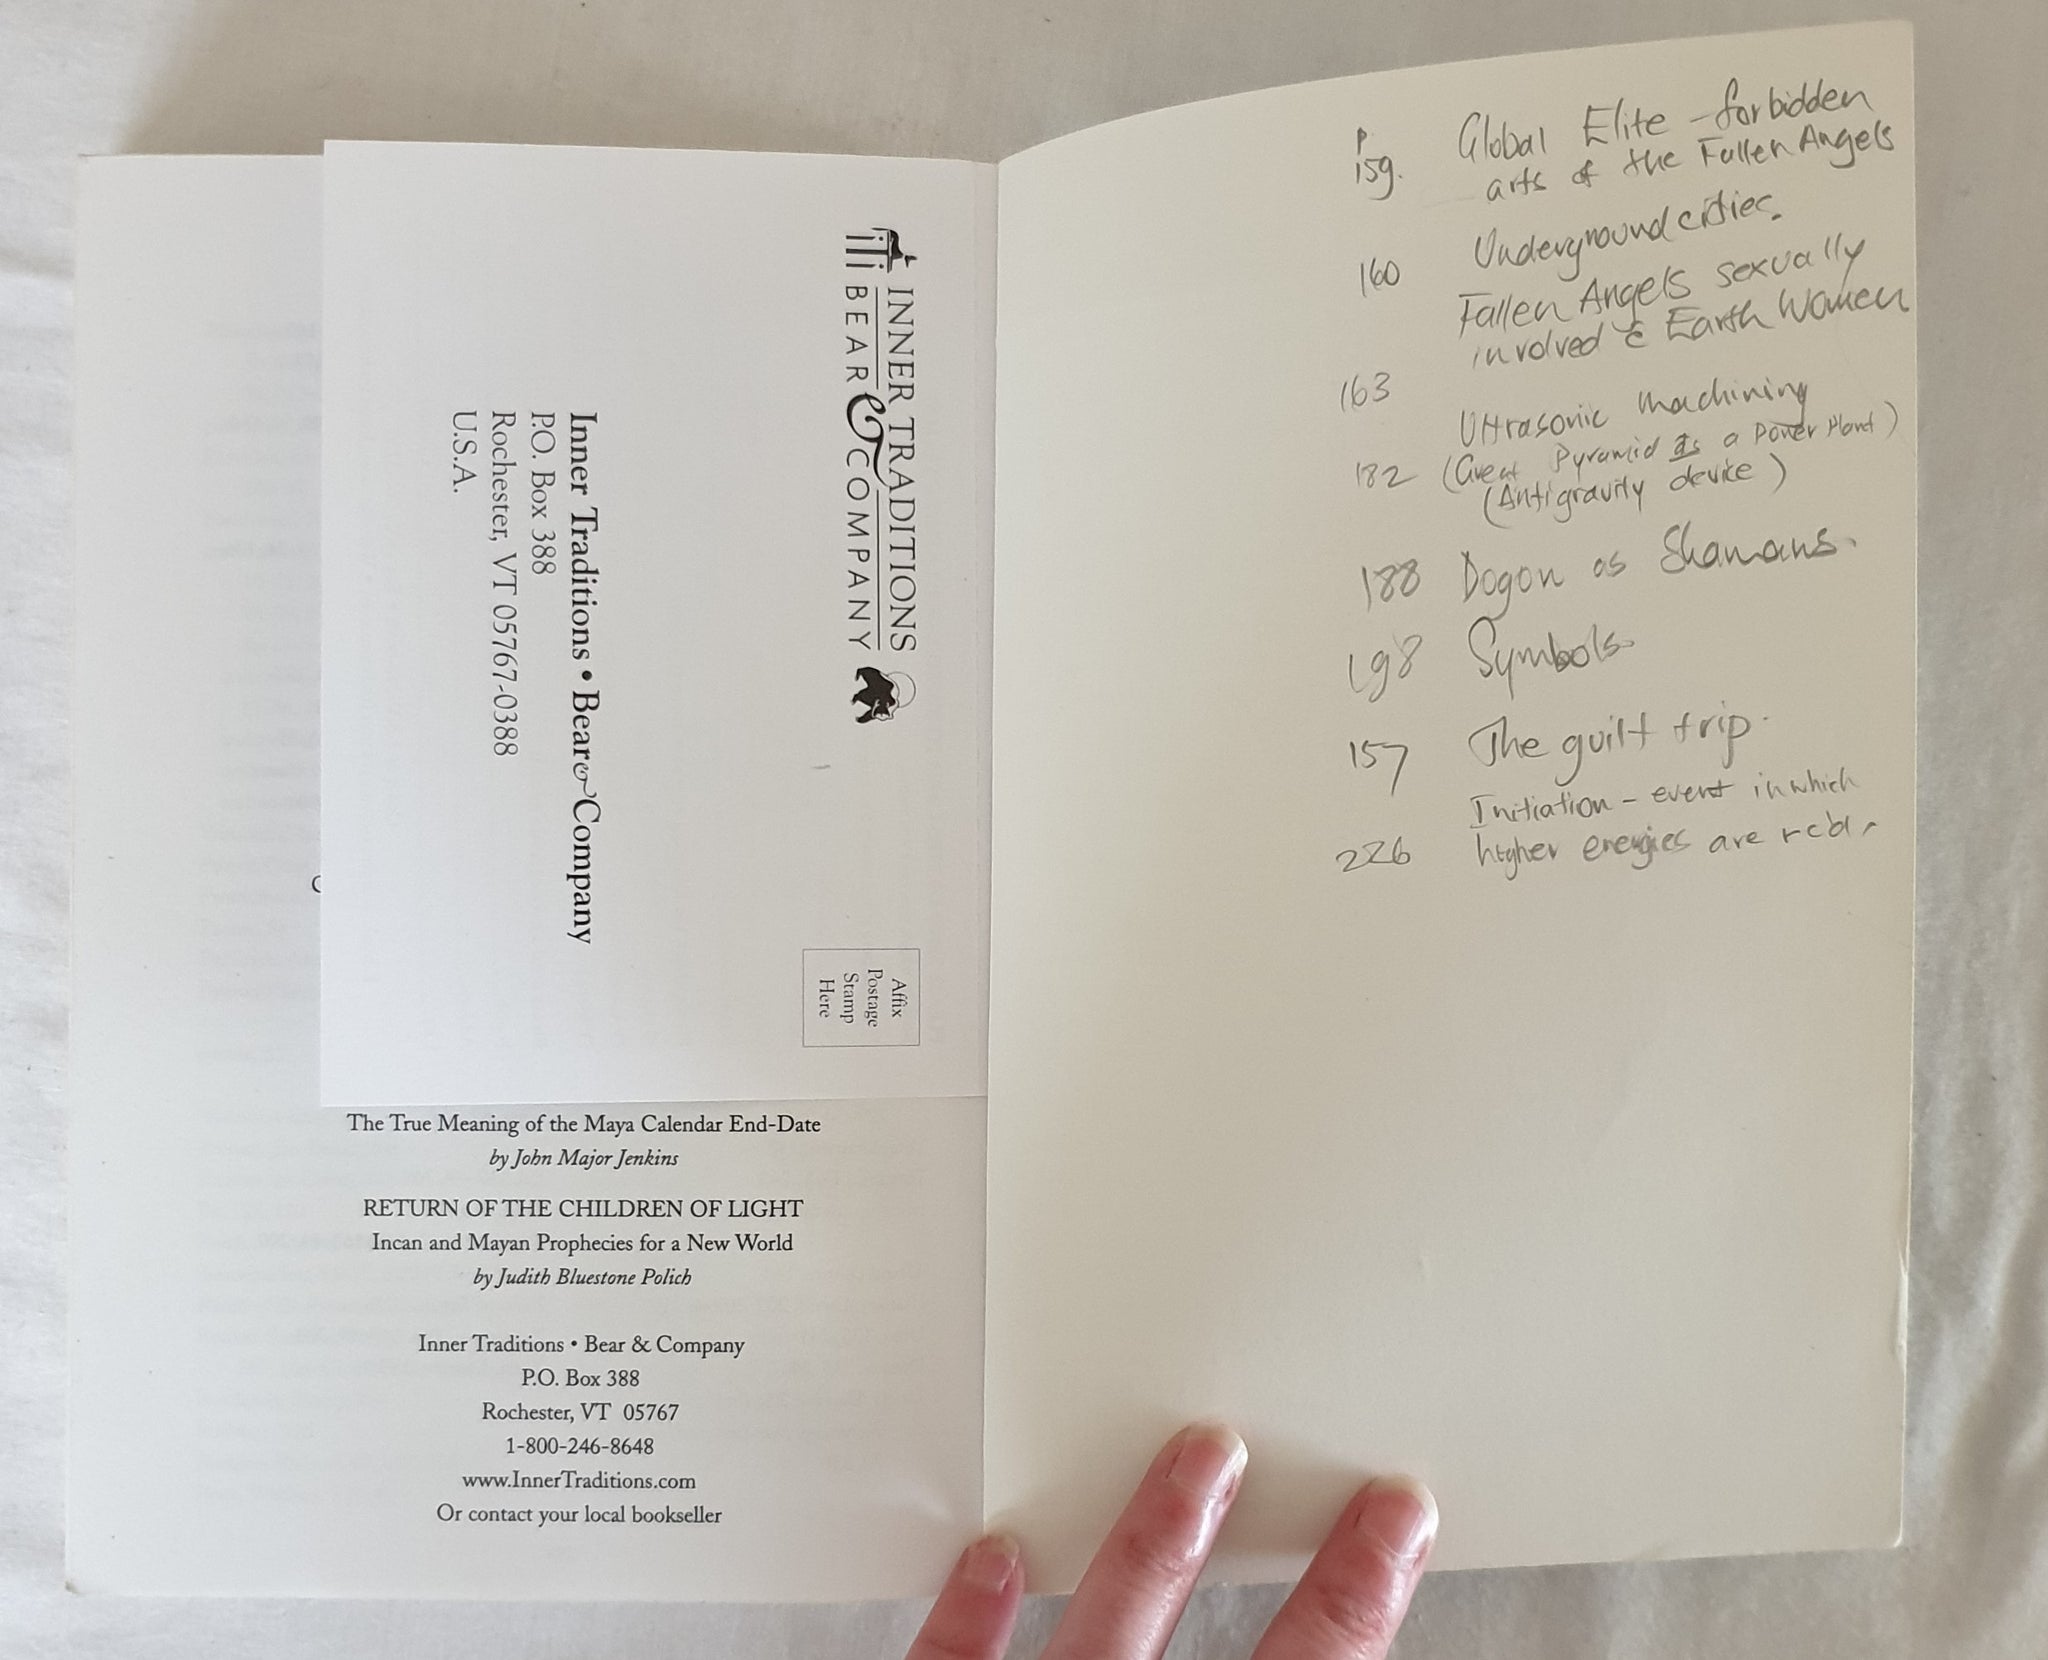 INNER TRADITIONS
BEAR & COMPANY
Inner Traditions • Bear & Company
P.O. Box 388
Rochester, VT 05767-0388
U.S.A.
Affix
Postage
Stamp
Here
The True Meaning of the Maya Calendar End-Date
by John Major Jenkins
RETURN OF THE CHILDREN OF LIGHT
Incan and Mayan Prophecies for a New World
by Judith Bluestone Polich
Inner Traditions • Bear & Company
P.O. Box 388
Rochester, VT 05767
1-800-246-8648
www.InnerTraditions.com
Or contact your local bookseller
p. 159. Global Elite - forbidden
arts of the Fallen Angels
160 Underground cities.
Fallen Angels sexually
163 involved c̄ Earth Women
Ultrasonic machining
182 (Great Pyramid as a Power Plant)
(Antigravity device)
188 Dogon as Shamans.
198 Symbols
157 The guilt trip.
Initiation - event in which
226 higher energies are rc'd.